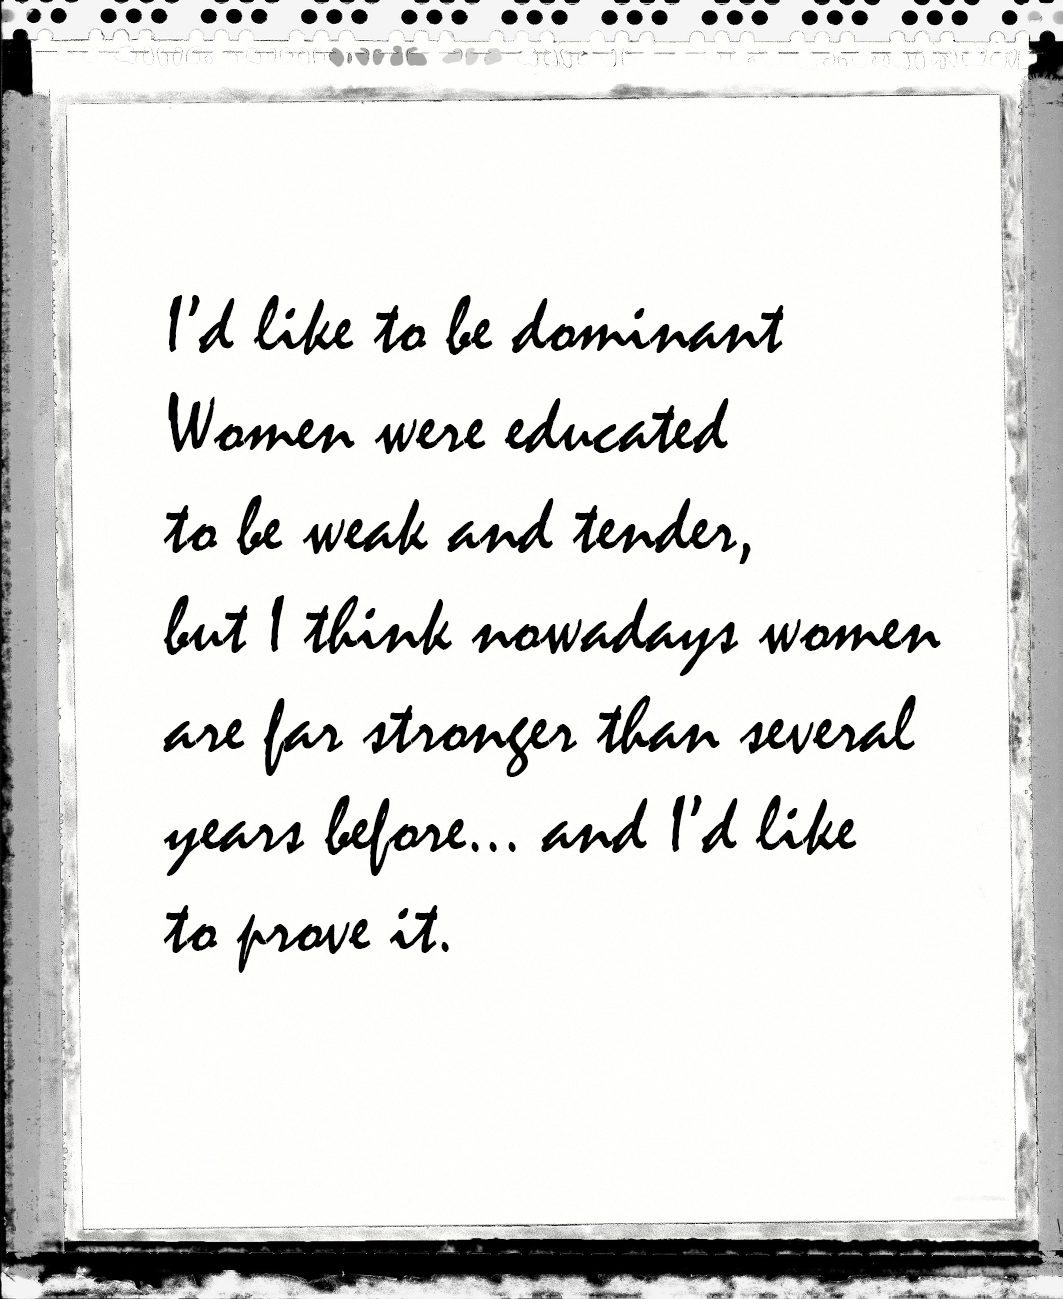 I'd like to be dominant
Women were educated
to be weak and tender,
but I think nowadays women
are far stronger than several
years before... and I'd like
to prove it.